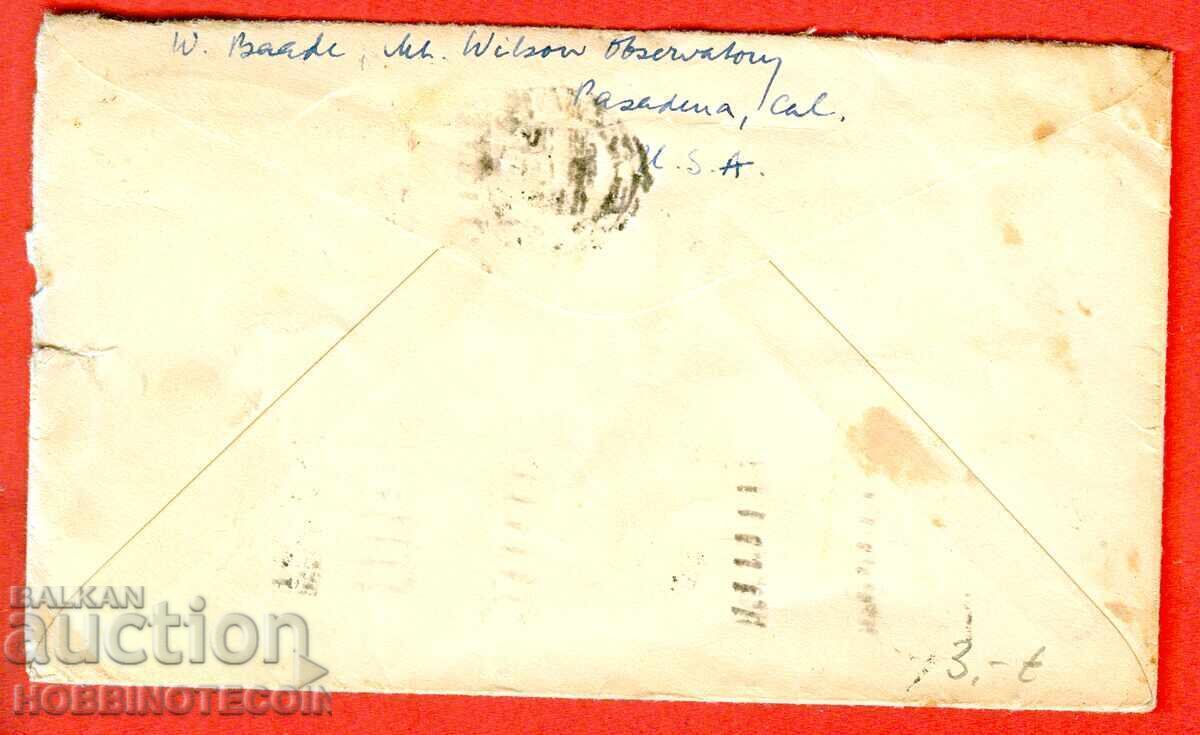 W. Baade, Mt. Wilson Observatory
Pasadena, Cal.
U.S.A.
3,-
BALKAN
auction
HOBBINOTECOIN